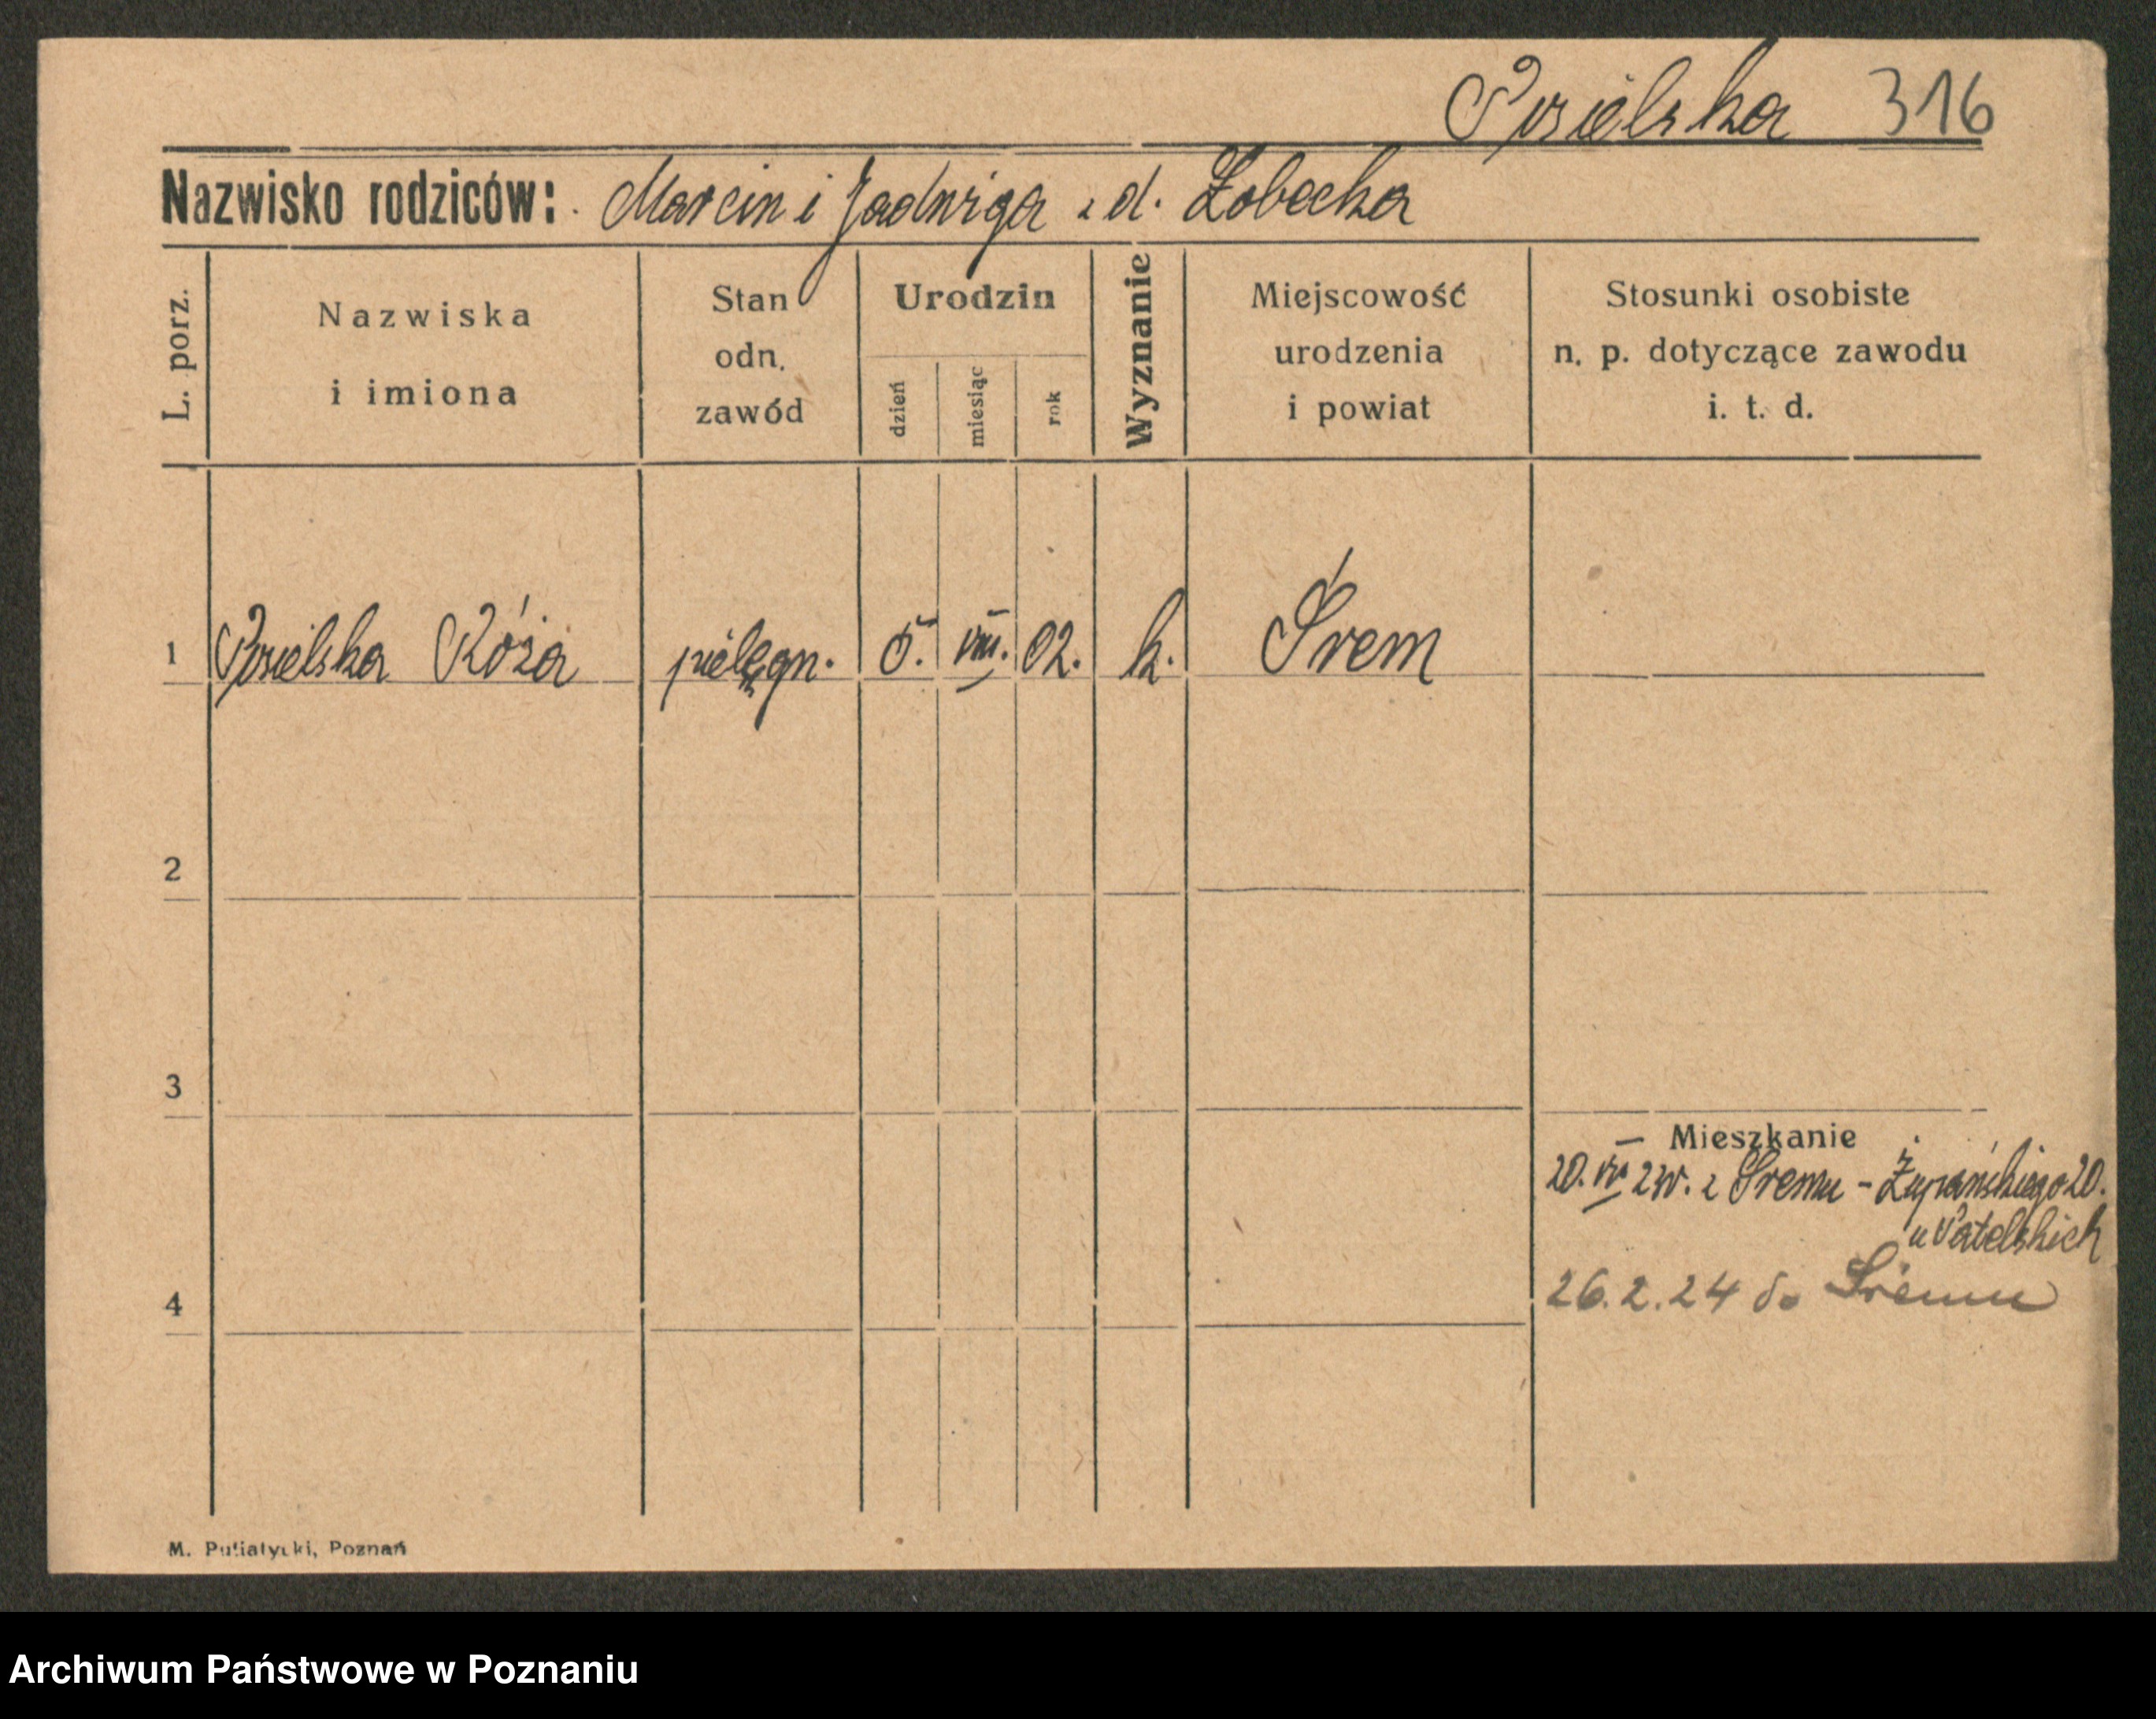 Psielska 316
Nazwisko rodziców: Marcin i Jadwiga z d. Łobecka
L. porz.
Nazwiska i imiona
Stan odn. zawód
Urodzin
dzień miesiąc rok
Wyznanie
Miejscowość urodzenia i powiat
Stosunki osobiste n. p. dotyczące zawodu i. t. d.
1 Psielska Róża pielęgn. 5. VIII. 02. k. Śrem
2
3
Mieszkanie
20. zw. z Śremu - Żupańskiego 20.
u
4
26.2.24 do Śremu
M. Putiatycki, Poznań
Archiwum Państwowe w Poznaniu